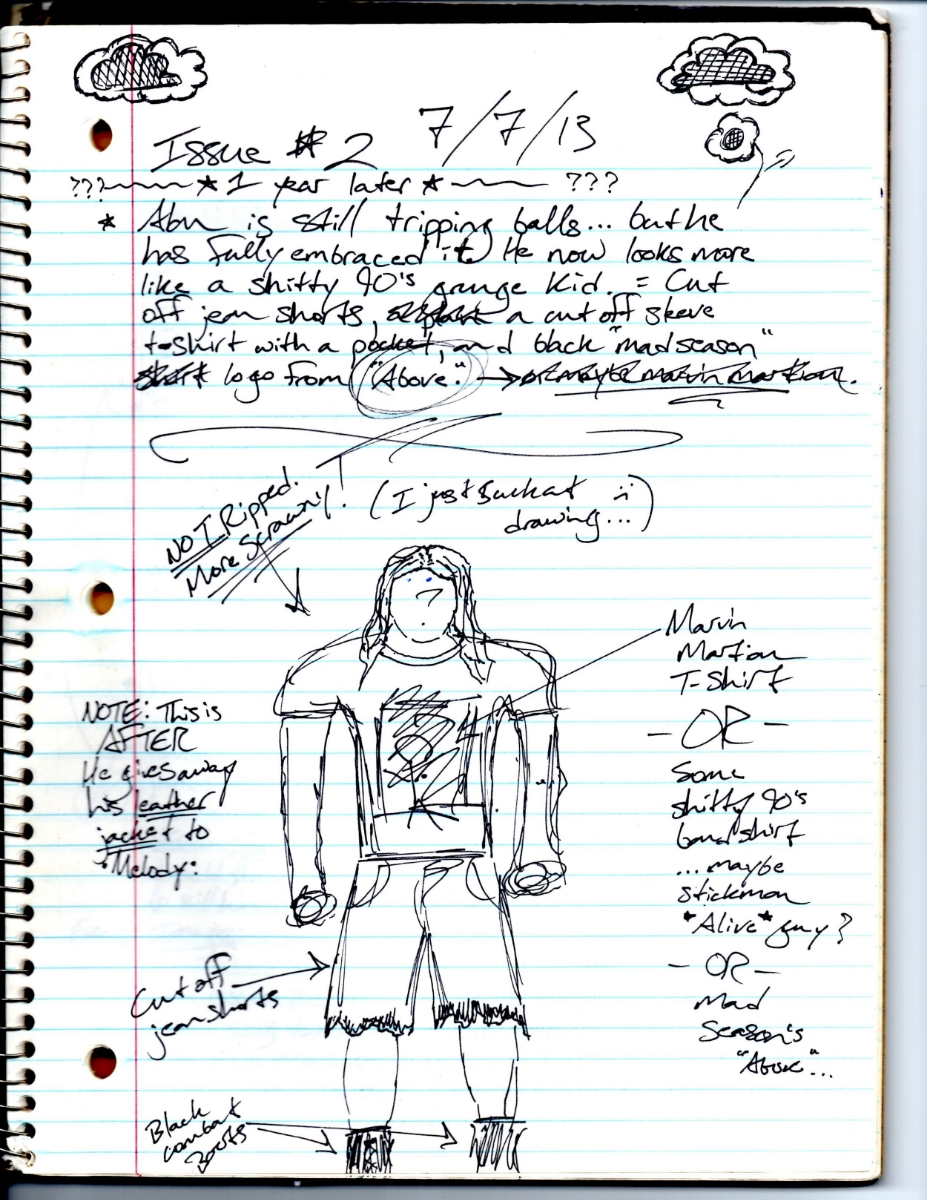 Issue # 2 7/7/13
??? * 1 year later * ???
* Abu is still tripping balls... but he
has fully embraced it. He now looks more
like a shitty 90's grunge kid. = Cut
off jean shorts, a cut off sleeve
t-shirt with a pocket, and black "mad season"
logo from "Above." → or maybe marvin martian.
NO T Ripped.
More Scrawny!
(I just suck at :)
drawing...)
?
NOTE: This is
AFTER
He gives away
his leather
jacket to
Melody:
Marvin
Martian
T-Shirt
- OR -
Some
shitty 90's
band shirt
...maybe
stickman
*Alive* guy?
- OR -
Mad
Season's
"Above"...
Cut off
jean shorts
Black
combat
Boots